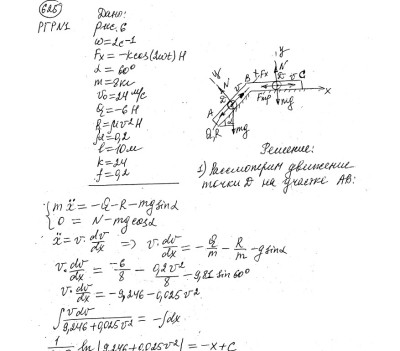 625
РГР N1
Дано:
рис. 6
ω=2c⁻¹
Fx = -kcos(2ωt) H
α = 60°
m = 8кг
v₀=24 м/с
Q = -6 H
R = μv² H
μ = 0,2
l = 10м
k = 24
f = 0,2
y
N
B
+Fx
D
v
C
Fтр
mg
x
y
N
A
Q,R
mg
Решение:
1) Рассмотрим движение
точки D на участке AB:
mẍ = -Q-R-mgsinα
0 = N-mgcosα
ẍ = v·dv/dx ⇒ v·dv/dx = -Q/m - R/m - gsinα
v·dv/dx = -6/8 - 0,2v²/8 - 9,81 sin60°
v·dv/dx = -9,246 - 0,025v²
∫ vdv/(9,246+0,025v²) = -∫dx
ln|9,246+0,025v²| = -x+C